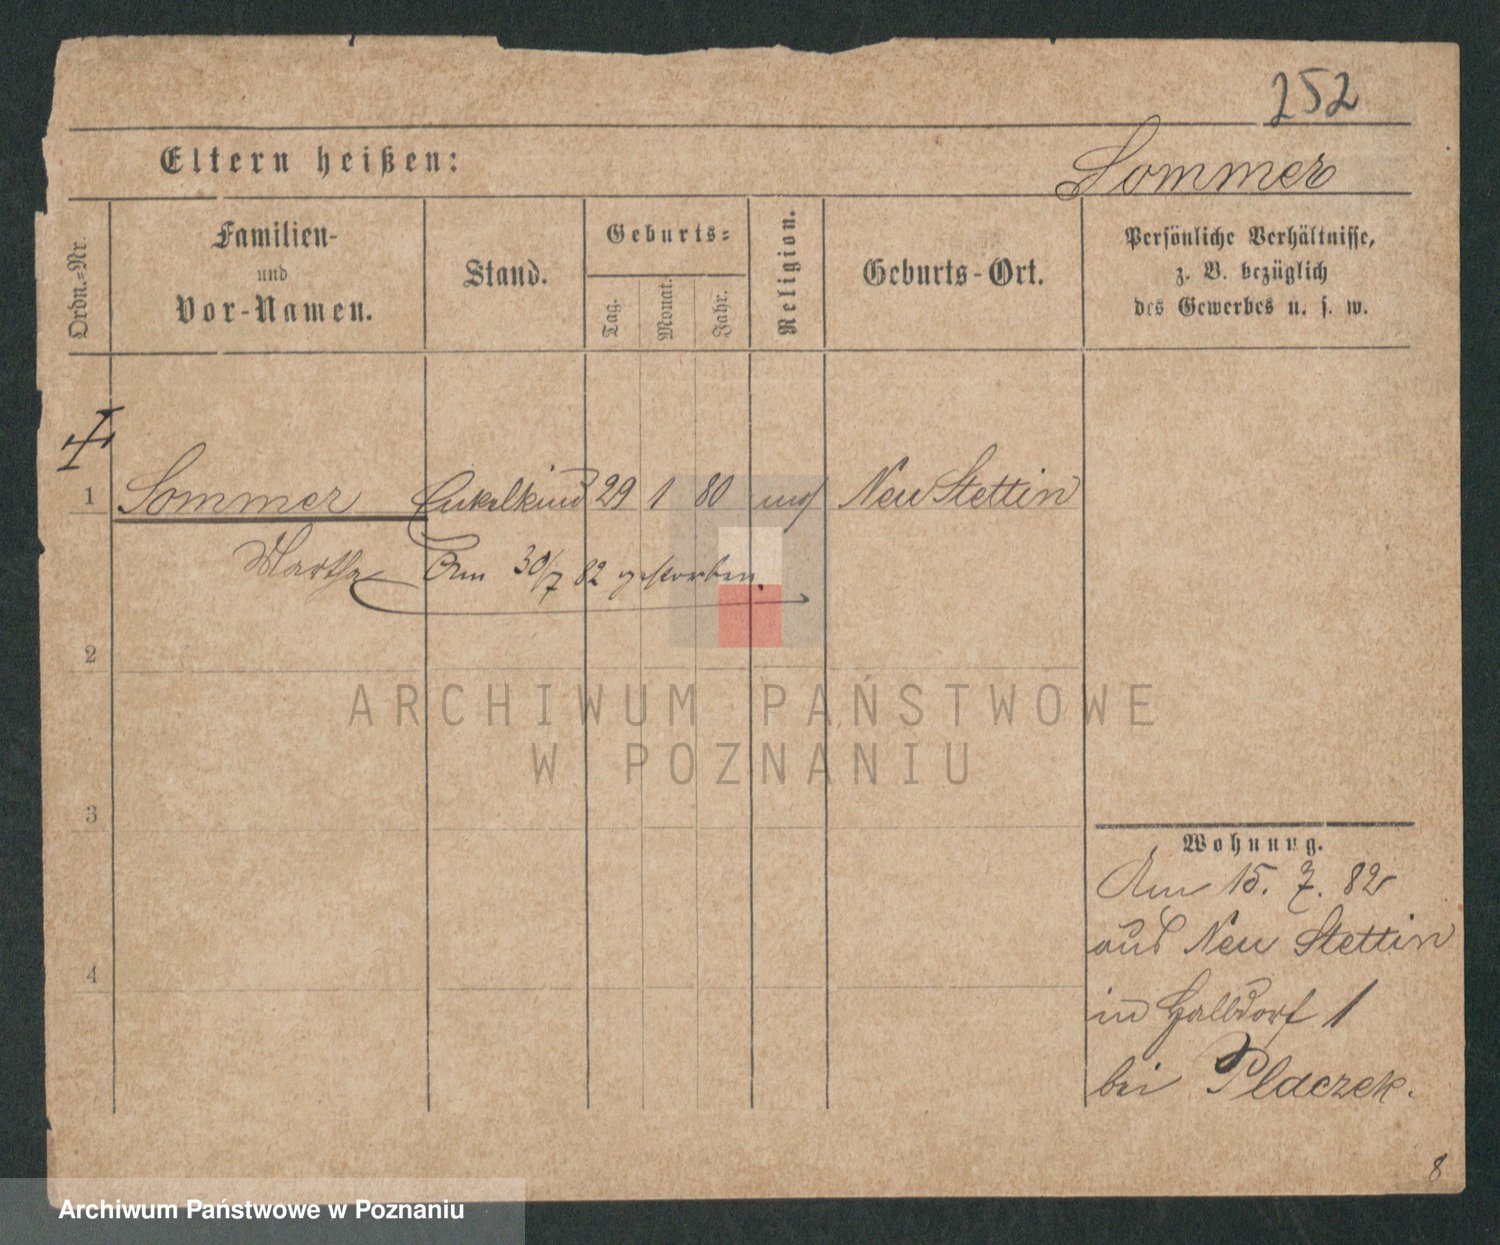 252
Eltern heißen:
Sommer
Ordn.=Nr.
Familien-
und
Vor-Namen.
Stand.
Geburts=
Tag.
Monat.
Jahr.
Religion.
Geburts-Ort.
Persönliche Verhältnisse,
z. B. bezüglich
des Gewerbes u. s. w.
1 Sommer Enkelkind 29 1 80 mos Neu Stettin
Martha Am 30/7 82 gestorben.
2
3
4
Wohnung.
Am 15. 7. 82
aus Neu Stettin
in Halbdorf 1
bei Placzek.
8
ARCHIWUM PAŃSTWOWE
W POZNANIU
Archiwum Państwowe w Poznaniu